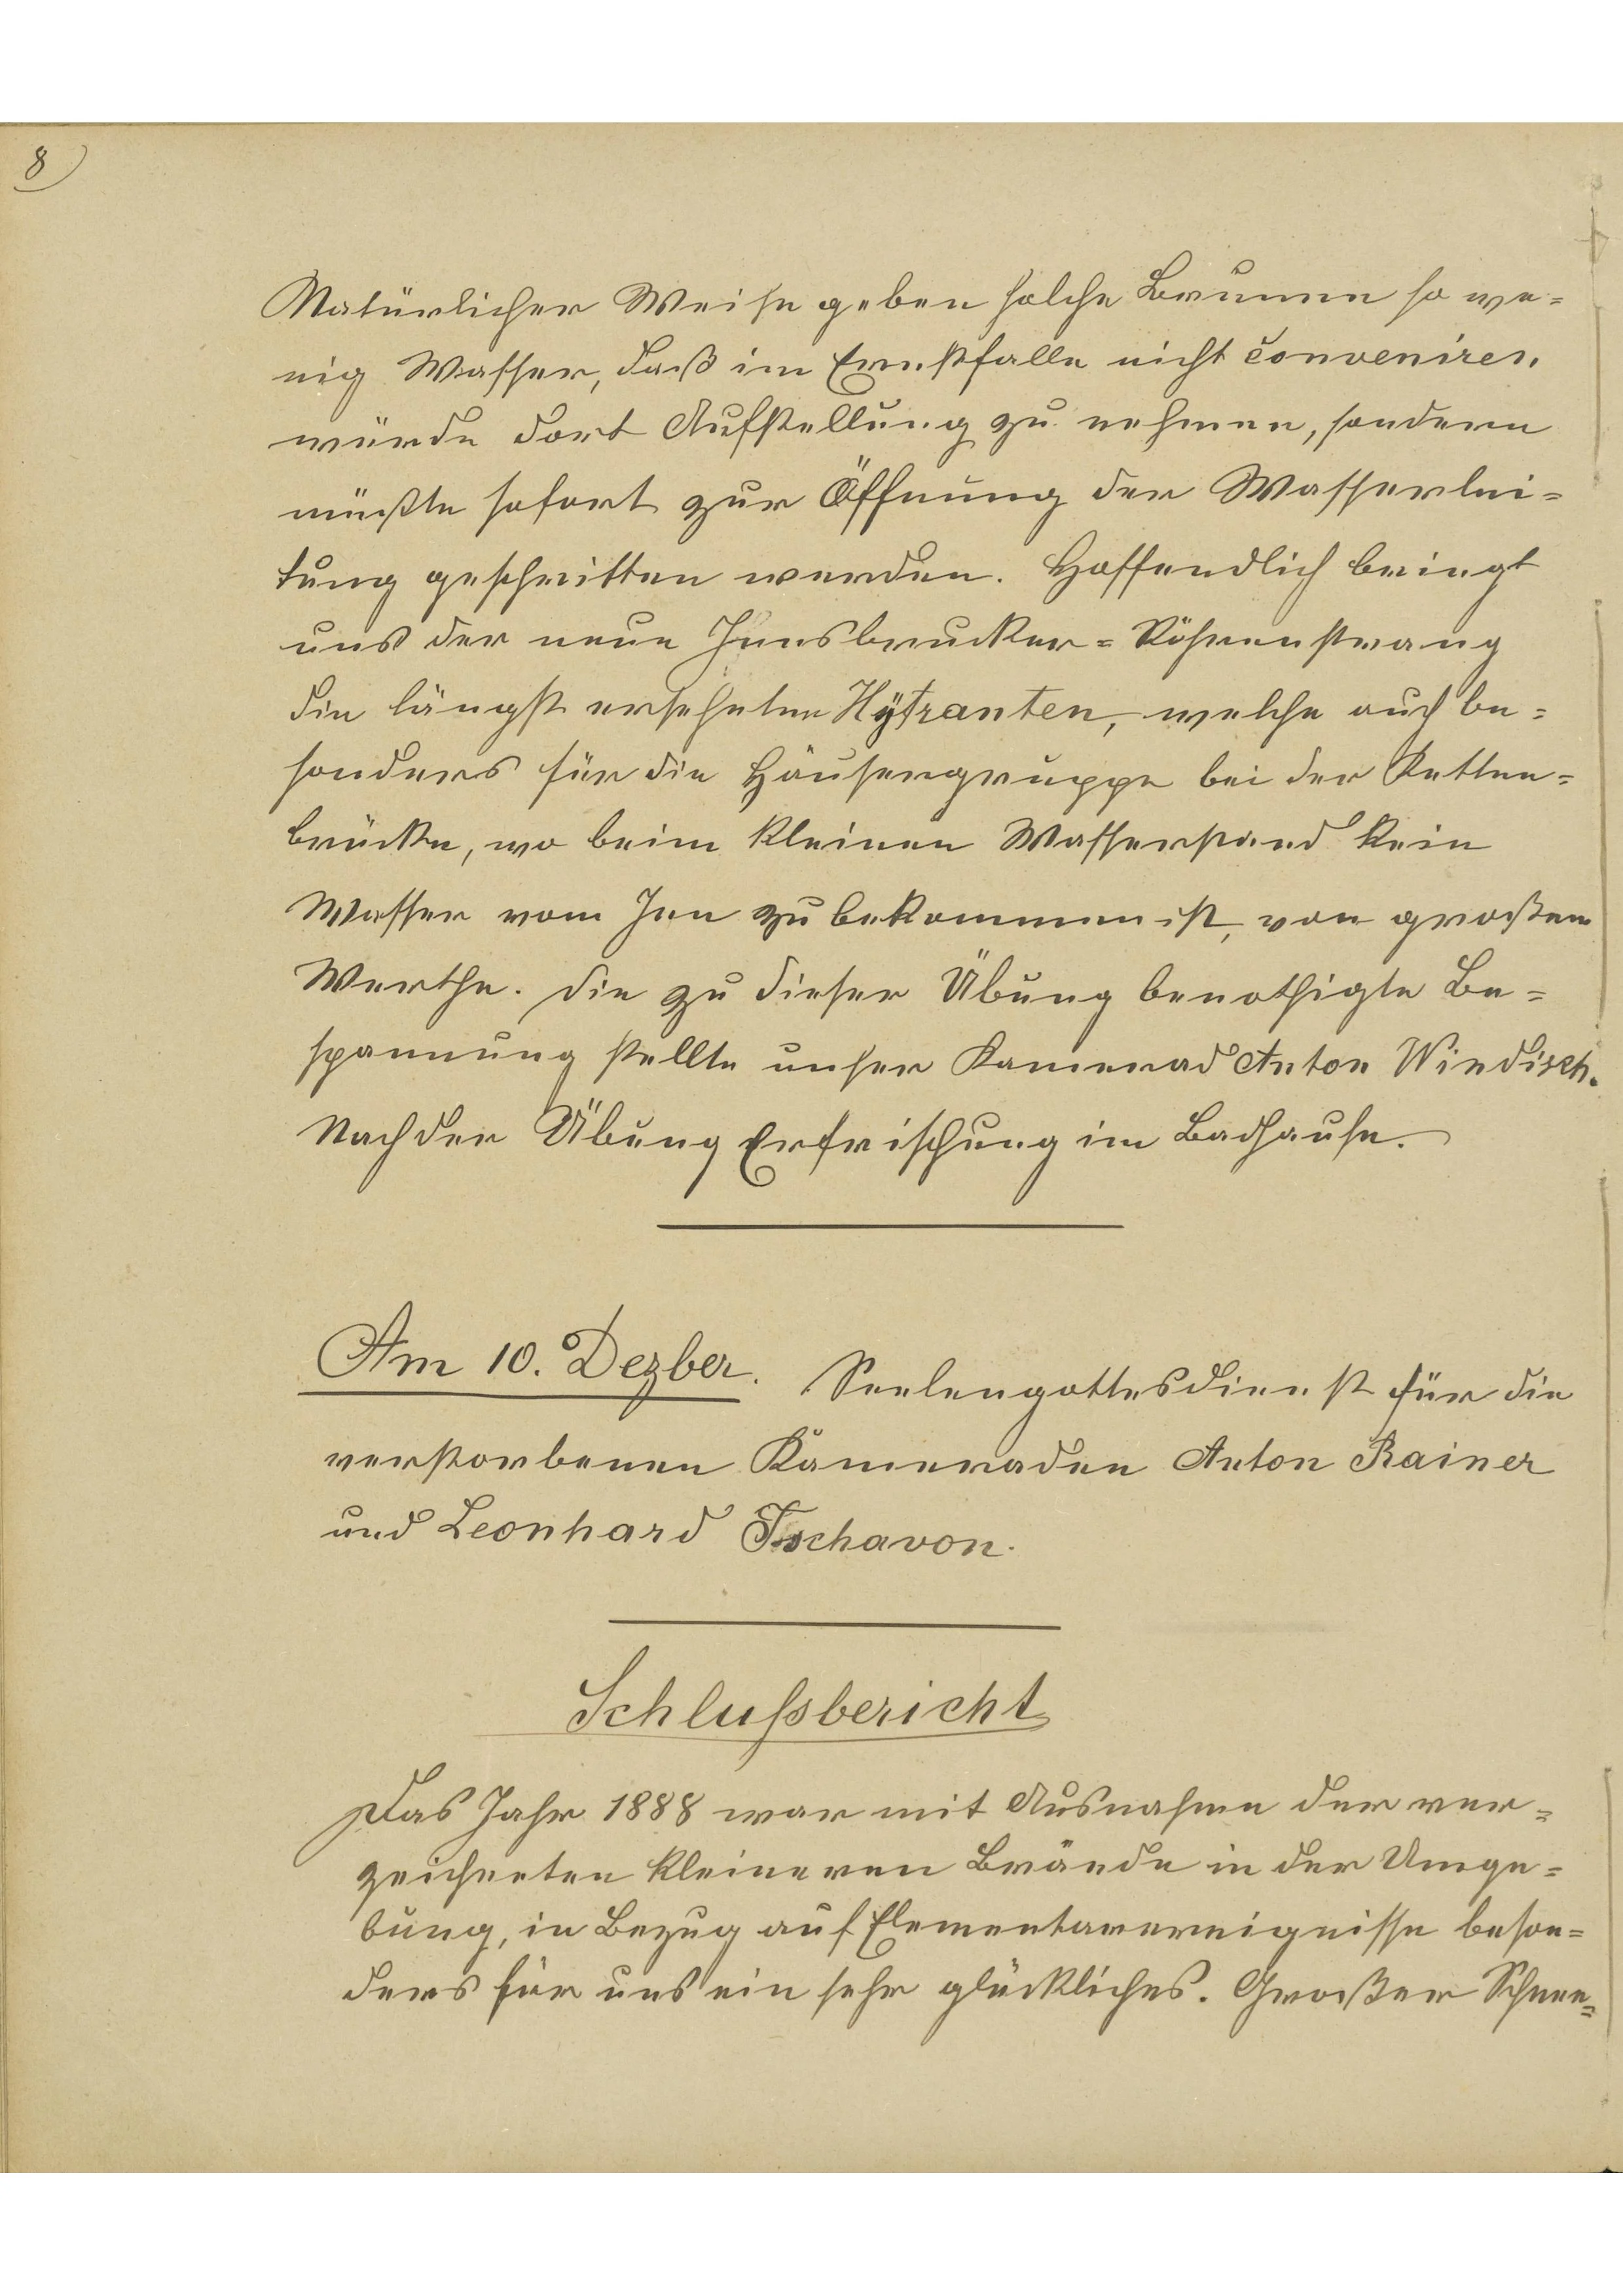 8
Natürlicher Weise geben solche Brunnen so we=
nig Wasser, daß im Ernstfalle nicht conveniren
würde dort Aufstellung zu nehmen, sondern
müßte sofort zur Öffnung der Wasserlei=
tung geschritten werden. Hoffendlich bringt
uns der neue Innsbrucker=Röhrenstrang
die längst ersehnten Hÿtranten, welche auch be=
sonders für die Häusergruppe bei der Ketten=
brücke, wo beim kleinen Wasserstand kein
Wasser vom Inn zu bekommen ist, von großem
Werthe. Die zu dieser Übung benothigte Be=
spannung stellte unser Kamerad Anton Windisch.
Nach der Übung Erfrischung im Badhause.
Am 10. Dezber. Seelengottesdienst für die
verstorbenen Kameraden Anton Rainer
und Leonhard Tschavon.
Schlußbericht
Das Jahr 1888 war mit Ausnahme der ver=
zeichneten kleineren Brände in der Umge=
bung, in Bezug auf Elementarereignisse beson=
ders für uns ein sehr glückliches. Großer Schnee=